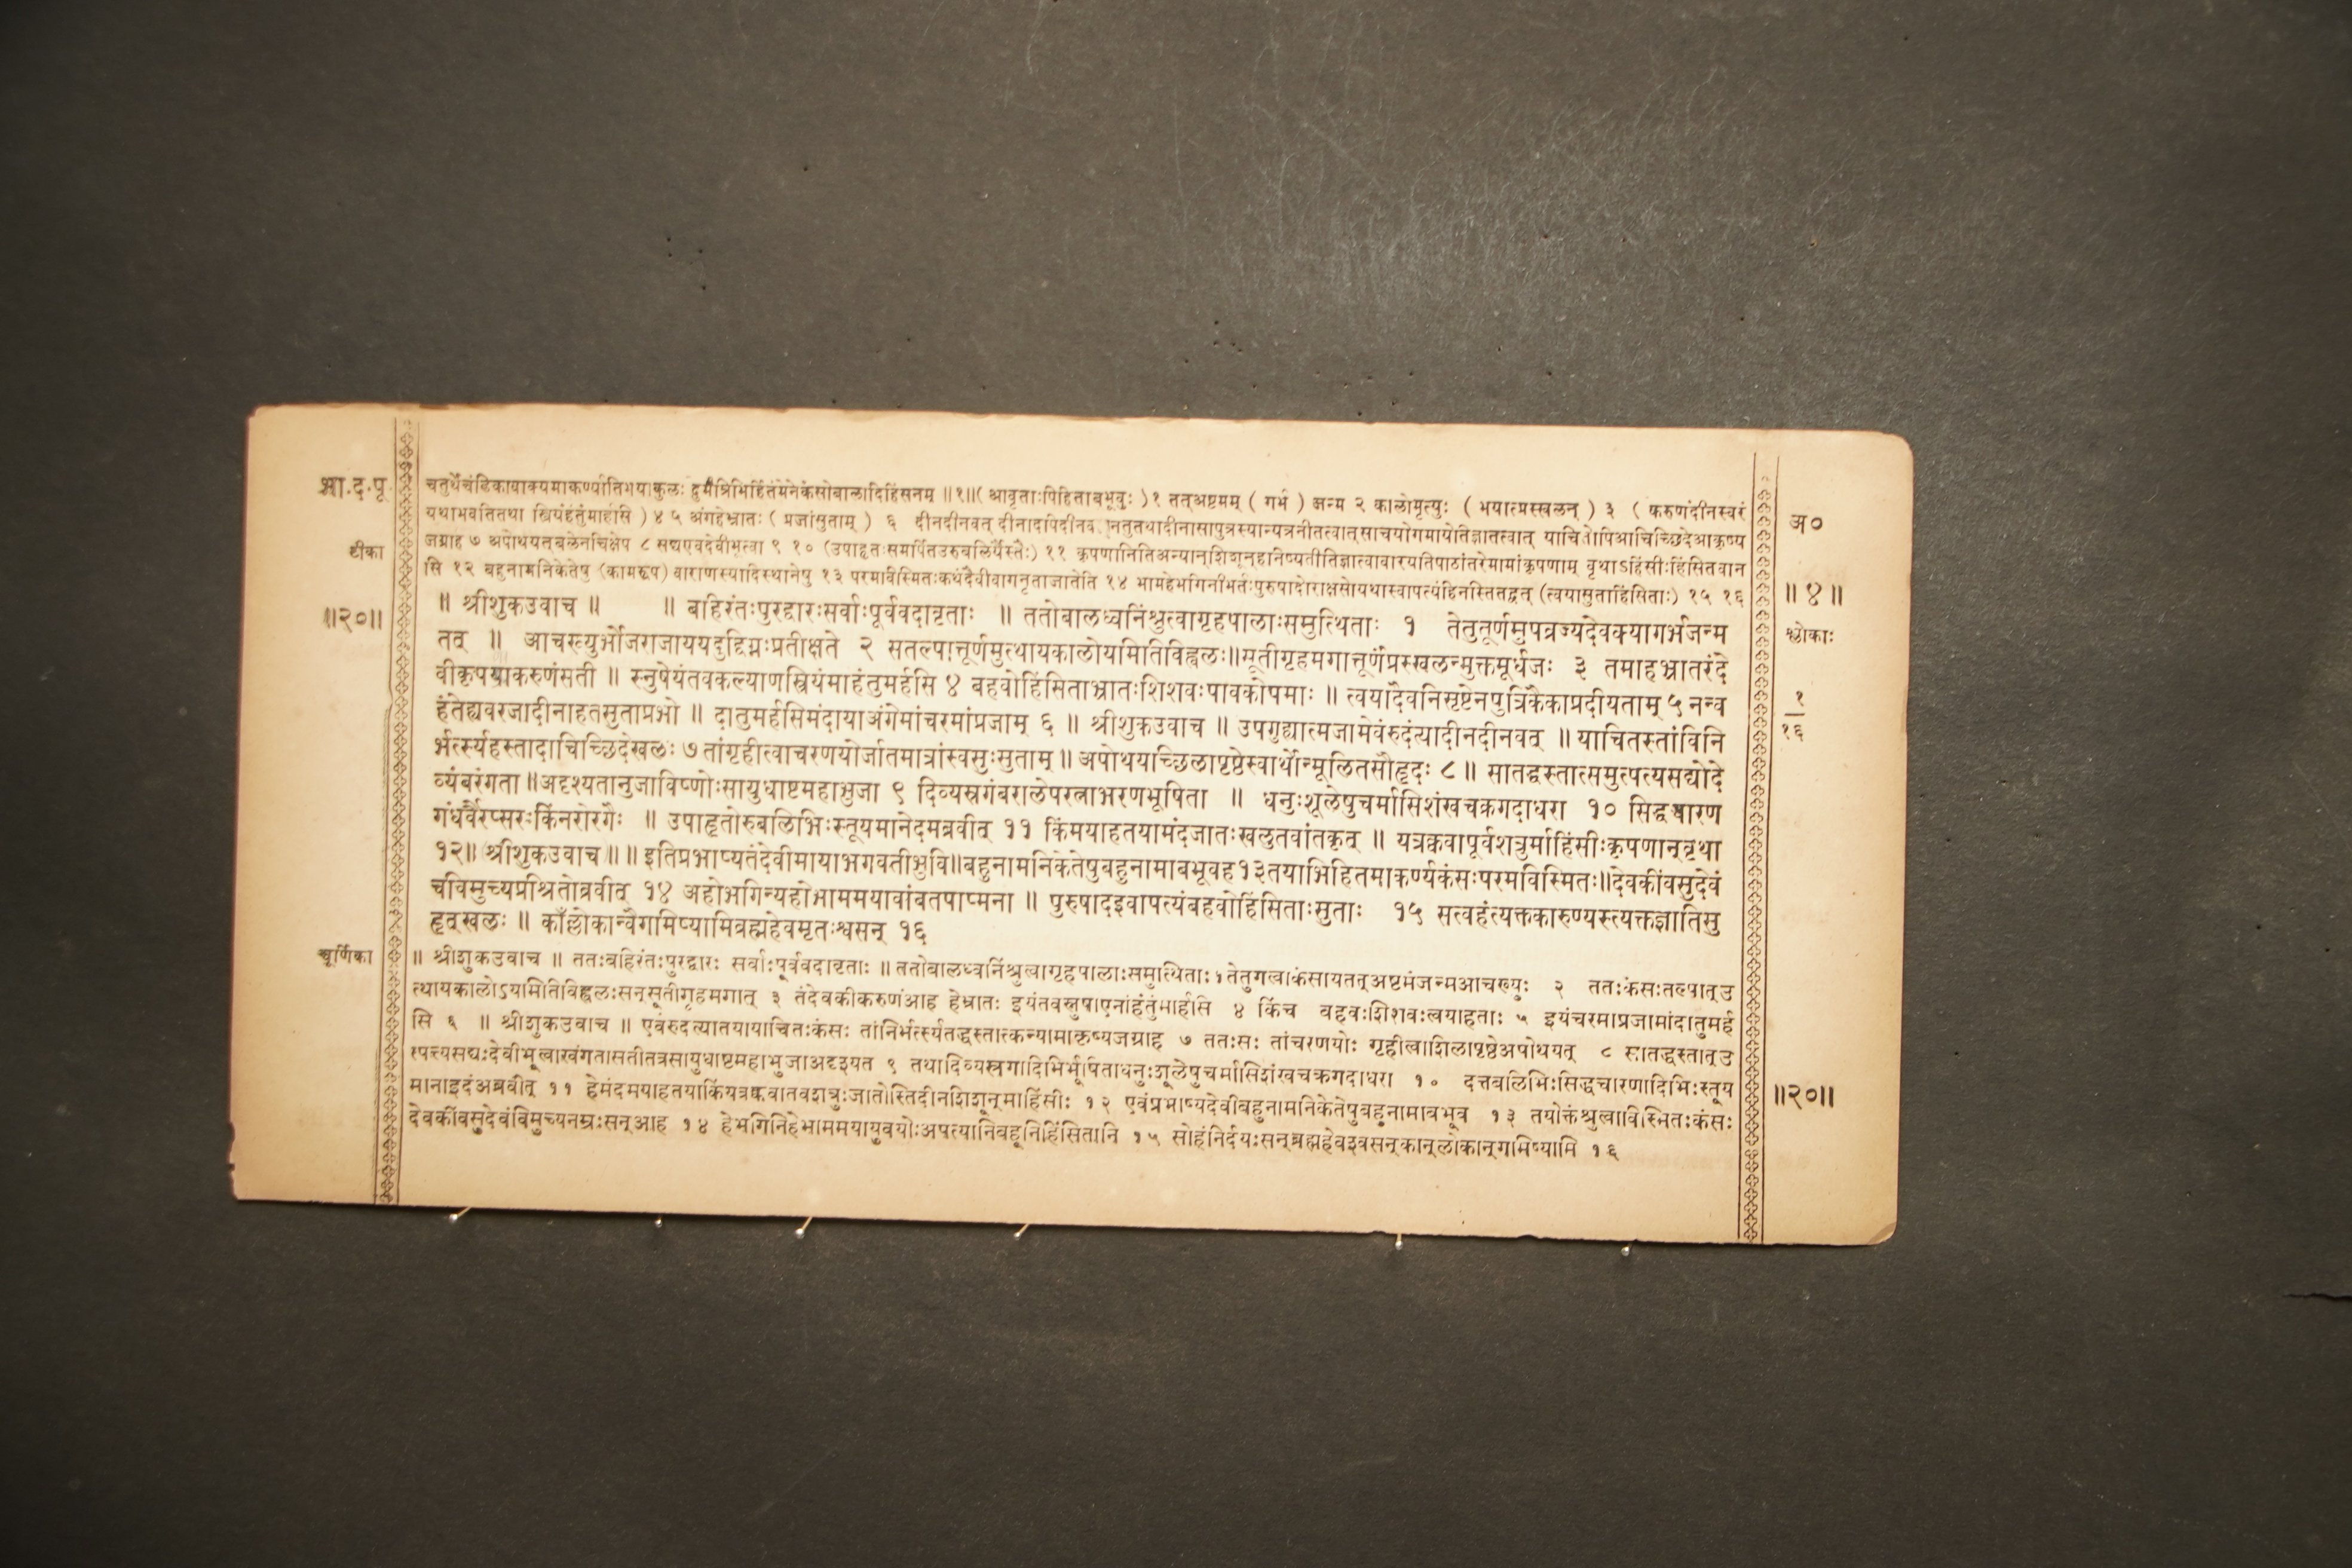 भा.द.पू
टीका
॥२०॥
चूर्णिका
चतुर्थेचंडिकावाक्यमाकर्ण्यातिभयाकुलः दुर्मंत्रिभिर्हितंमेनेकंसोबालादिहिंसनम् ॥१॥( आवृताःपिहिताबभूवुः )१ तत्अष्टमम् ( गर्भ ) जन्म २ कालोमृत्युः ( भयात्प्रस्खलन् ) ३ ( करुणंदीनस्वरं
यथाभवतितथा स्त्रियंहंतुंमार्हसि ) ४ ५ अंगहेभ्रातः ( प्रजांसुताम् ) ६ दीनदीनवत् दीनादपिदीनव नतुतथादीनासापुत्रस्यान्यत्रनीतत्वात्साचयोगमायेतिज्ञातत्वात् याचितोपिआचिच्छिदेआकृष्य
जग्राह ७ अपोथयत्बलेनचिक्षेप ८ सद्यएवदेवीभूत्वा ९ १० (उपाहृतःसमर्पितउरुबलिर्यैस्तैः) ११ कृपणानितिअन्यान्शिशून्हनिष्यतीतिज्ञात्वावारयतिपाठांतरेमामांकृपणाम् वृथाऽहिंसीःहिंसितवान
सि १२ बहुनामनिकेतेषु (कामरूप) वाराणस्यादिस्थानेषु १३ परमविस्मितःकथंदैवीवागनृताजातेति १४ भामहेभगिनीभर्तःपुरुषादोराक्षसोयथास्वापत्यंहिनस्तितद्वत् (त्वयासुताहिंसिताः) १५ १६
॥ श्रीशुकउवाच ॥ ॥ बहिरंतःपुरद्वारःसर्वाःपूर्ववदावृताः ॥ ततोबालध्वनिंश्रुत्वागृहपालाःसमुत्थिताः १ तेतुतूर्णमुपव्रज्यदेवक्यागर्भजन्म
तत् ॥ आचख्युर्भोजराजाययदुद्विग्नःप्रतीक्षते २ सतल्पात्तूर्णमुत्थायकालोयमितिविह्वलः॥सूतीगृहमगात्तूर्णंप्रस्खलन्मुक्तमूर्धजः ३ तमाहभ्रातरंदे
वीकृपयाकरुणंसती ॥ स्नुषेयंतवकल्याणस्त्रियंमाहंतुमर्हसि ४ बहवोहिंसिताभ्रातःशिशवःपावकोपमाः ॥ त्वयादैवनिसृष्टेनपुत्रिकैकाप्रदीयताम् ५ नन्व
हंतेह्यवरजादीनाहतसुताप्रभो ॥ दातुमर्हसिमंदायाअंगेमांचरमांप्रजाम् ६ ॥ श्रीशुकउवाच ॥ उपगुह्यात्मजामेवंरुदंत्यादीनदीनवत् ॥ याचितस्तांविनि
र्भर्त्स्यहस्तादाचिच्छिदेखलः ७ तांगृहीत्वाचरणयोर्जातमात्रांस्वसुःसुताम् ॥ अपोथयाच्छिलापृष्ठेस्वार्थोन्मूलितसौहृदः ८ ॥ सातद्धस्तात्समुत्पत्यसद्योदे
व्यंबरंगता ॥अदृश्यतानुजाविष्णोःसायुधाष्टमहाभुजा ९ दिव्यस्रगंबरालेपरत्नाभरणभूषिता ॥ धनुःशूलेषुचर्मासिशंखचक्रगदाधरा १० सिद्धचारण
गंधर्वैरप्सरःकिंनरोरगैः ॥ उपाहृतोरुबलिभिःस्तूयमानेदमब्रवीत् ११ किंमयाहतयामंदजातःखलुतवांतकृत् ॥ यत्रक्कवापूर्वशत्रुर्माहिंसीःकृपणान्वृथा
१२॥ श्रीशुकउवाच ॥ ॥ इतिप्रभाष्यतंदेवीमायाभगवतीभुवि॥बहुनामनिकेतेषुबहुनामाबभूवह१३तयाभिहितमाकर्ण्यकंसःपरमविस्मितः॥देवकींवसुदेवं
चविमुच्यप्रश्रितोब्रवीत् १४ अहोभगिन्यहोभाममयावांबतपाप्मना ॥ पुरुषादइवापत्यंबहवोहिंसिताःसुताः १५ सत्वहंत्यक्तकारुण्यस्त्यक्तज्ञातिसु
हृत्खलः ॥ काँल्लोकान्वैगमिष्यामिब्रह्महेवमृतःश्वसन् १६
॥ श्रीशुकउवाच ॥ ततःबहिरंतःपुरद्वारः सर्वाःपूर्ववदावृताः ॥ ततोबालध्वनिंश्रुत्वागृहपालाःसमुत्थिताः १ तेतुगत्वाकंसायतत्अष्टमंजन्मआचख्युः २ ततःकंसःतल्पात्उ
त्थायकालोऽयमितिविह्वलःसन्सूतीगृहमगात् ३ तंदेवकीकरुणंआह हेभ्रातः इयंतवस्नुषाएनांहंतुंमार्हसि ४ किंच बहवःशिशवःत्वयाहताः ५ इयंचरमाप्रजामांदातुमर्ह
सि ६ ॥ श्रीशुकउवाच ॥ एवंरुदत्यातयायाचितःकंसः तांनिर्भर्त्स्यतद्धस्तात्कन्यामाकृष्यजग्राह ७ ततःसः तांचरणयोः गृहीत्वाशिलापृष्ठेअपोथयत् ८ सातद्धस्तात्उ
त्पत्यसद्यःदेवीभूत्वाखंगतासतीतत्रसायुधाष्टमहाभुजाअदृश्यत ९ तथादिव्यस्रगादिभिर्भूषिताधनुःशूलेषुचर्मासिशंखचक्रगदाधरा १० दत्तबलिभिःसिद्धचारणादिभिःस्तूय
मानाइदंअब्रवीत् ११ हेमंदमयाहतयाकिंयत्रक्कवातवशत्रुःजातोस्तिदीनशिशून्माहिंसीः १२ एवंप्रभाष्यदेवीबहुनामनिकेतेषुबहुनामाबभूव १३ तयोक्तंश्रुत्वाविस्मितःकंसः
देवकींवसुदेवंविमुच्यनम्रःसन्आह १४ हेभगिनिहेभाममयायुवयोःअपत्यानिबहूनिहिंसितानि १५ सोहंनिर्दयःसन्ब्रह्महेवश्वसन्कान्लोकान्गमिष्यामि १६
अ०
॥ ४ ॥
श्लोकाः
१
१६
॥२०॥